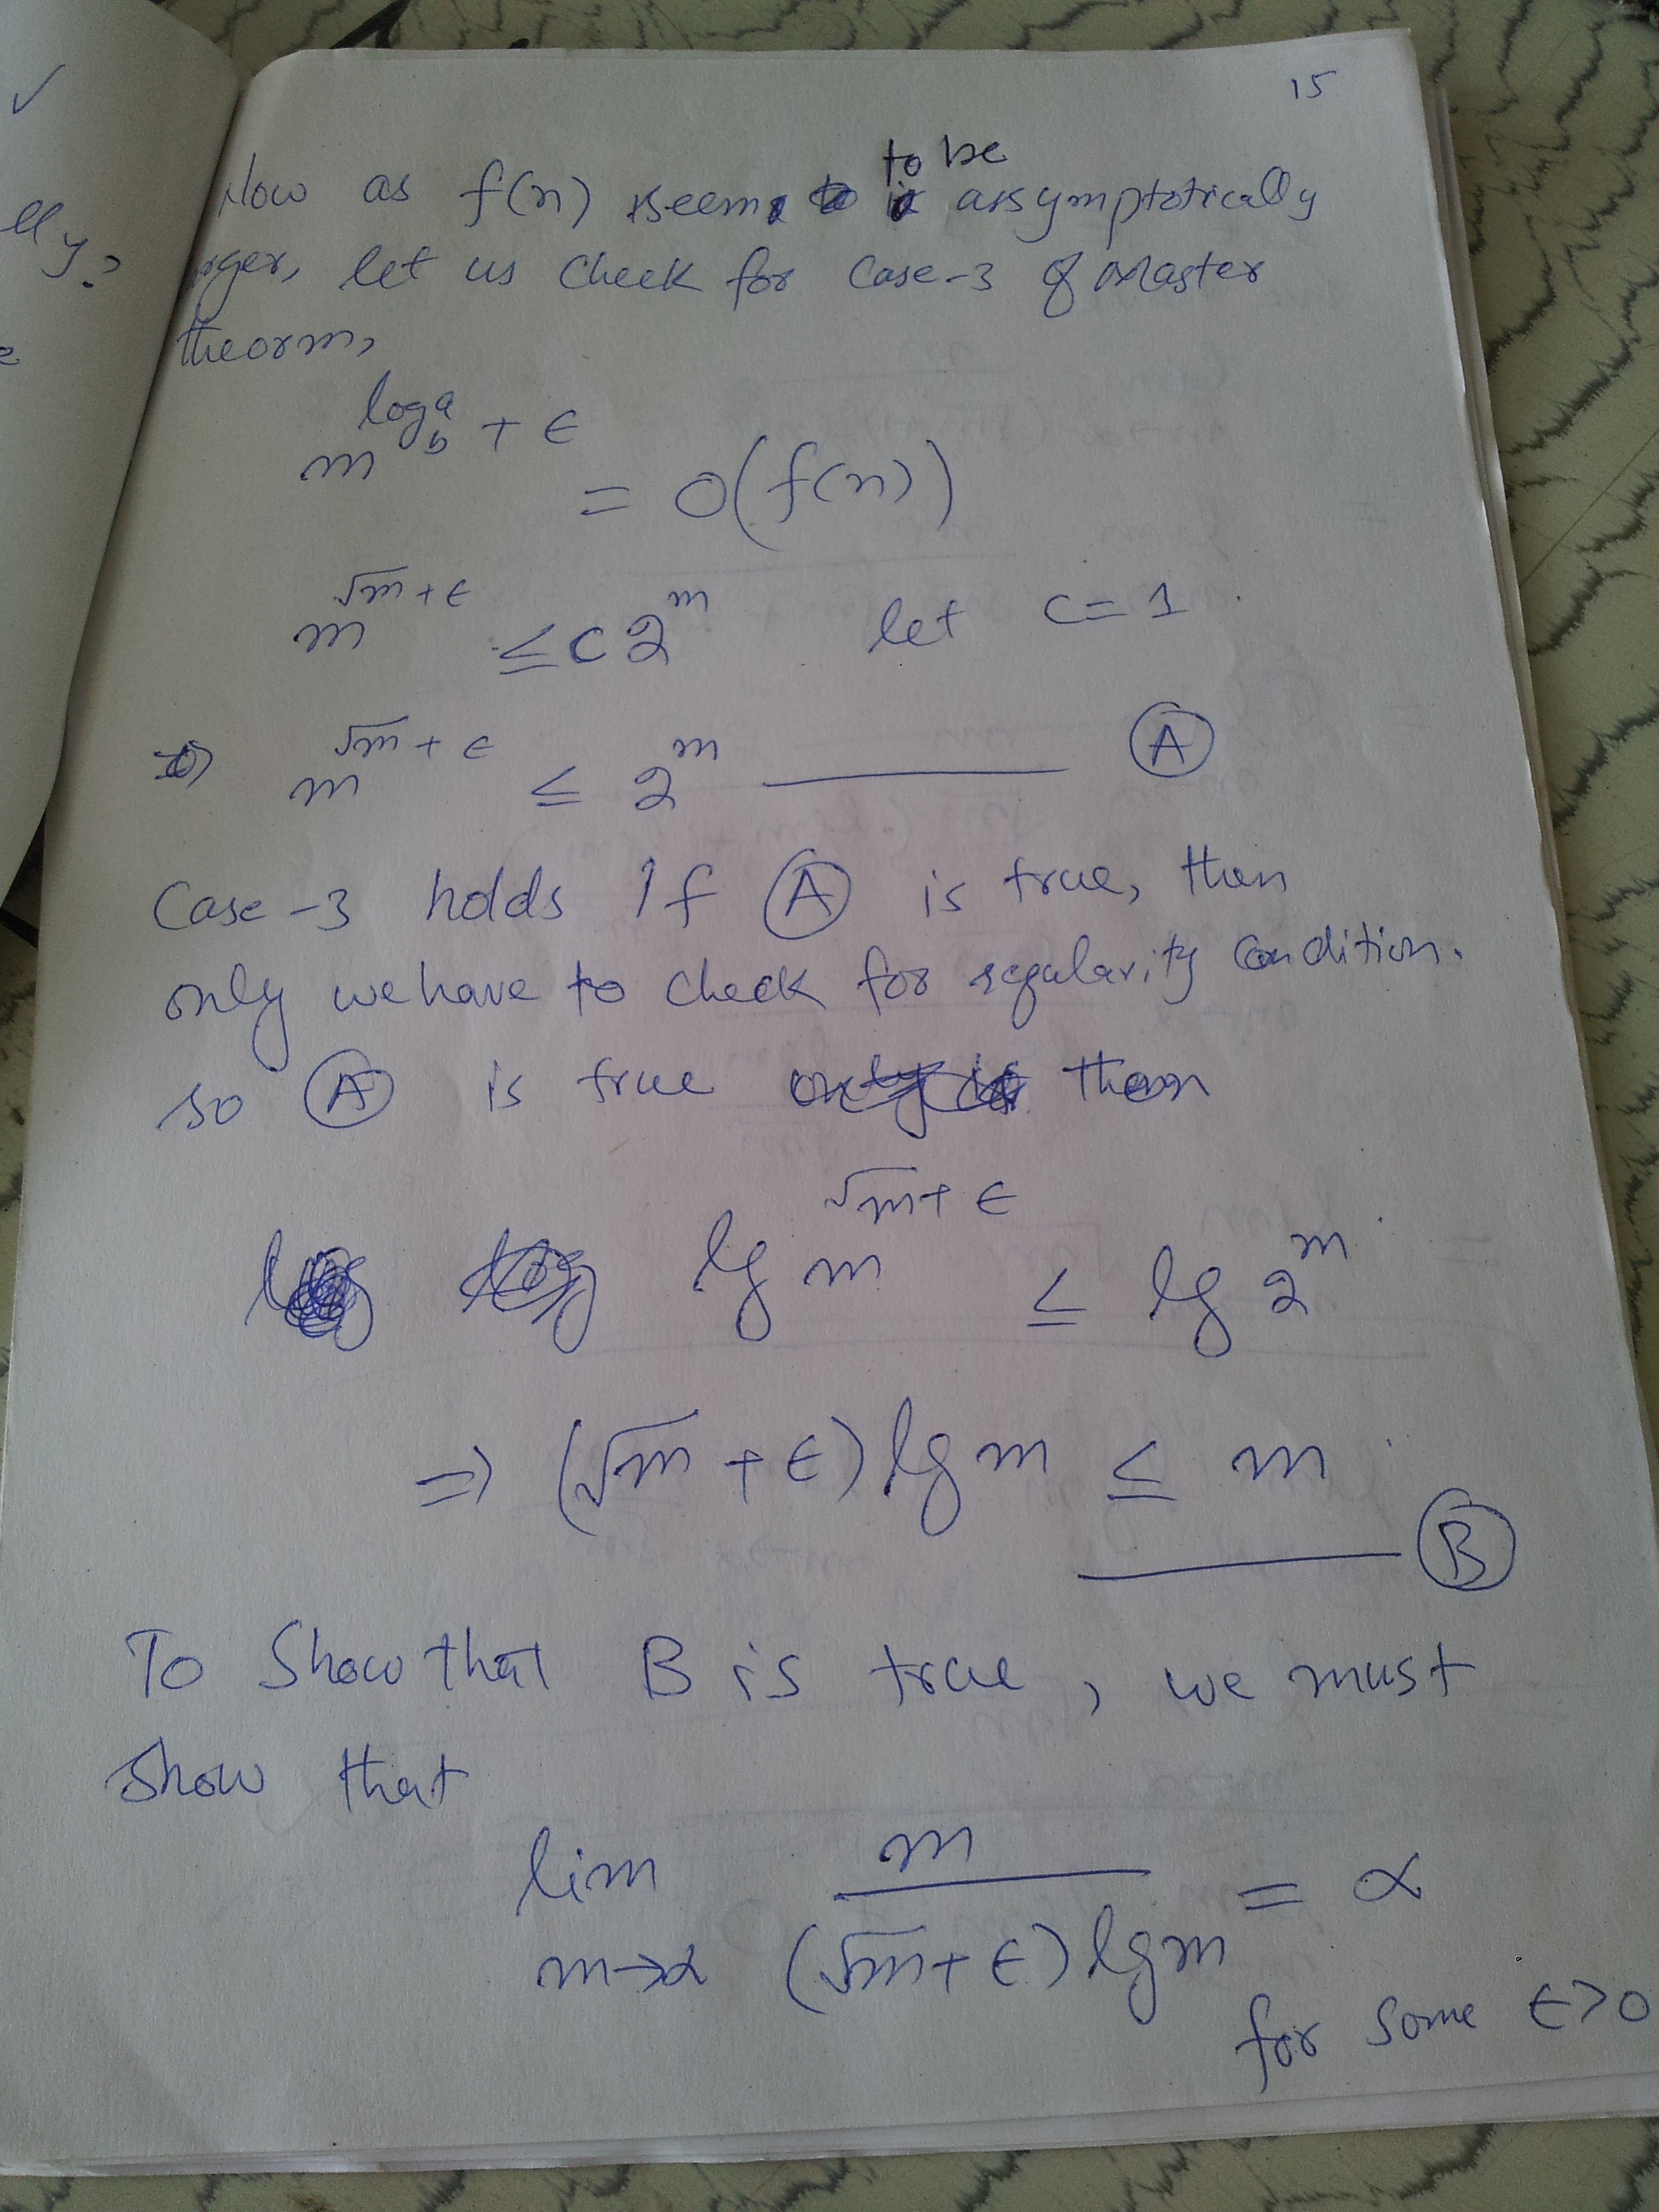 15
Now as f(n) seems to be assymptotically
let us check for case-3 of Master
theorm,
n^{log_b^a + ϵ} = O(f(n))
n^{√n + ϵ} ≤ c 2^n let c = 1
n^{√n + ϵ} ≤ 2^n —— (A)
Case-3 holds if (A) is true, then
only we have to check for regularity condition.
so (A) is true then
lg n^{√n + ϵ} ≤ lg 2^n
⇒ (√n + ϵ) lg n ≤ n
—— (B)
To show that B is true, we must
show that
lim n→α n / (√n + ϵ) lg n = α
for some ϵ>0